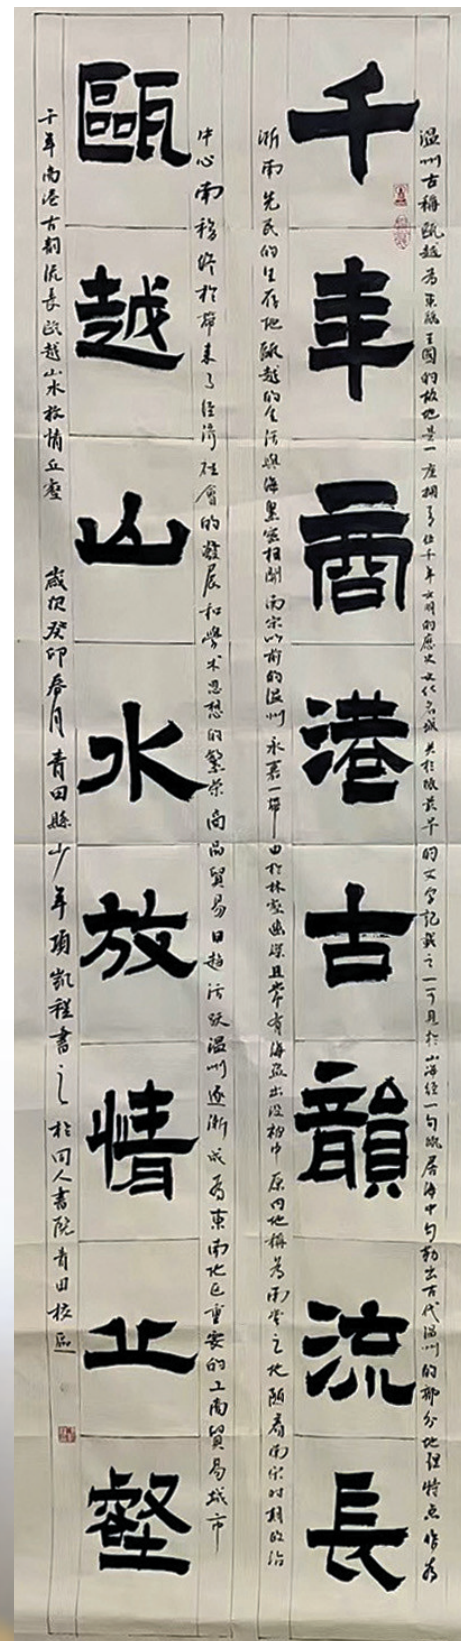 温州古稱甌越為東甌王國的故地是一座擁有近千年文明的歷史文化名城关於甌最早的文字記載之一可見於山海經一句甌居海中勾勒出古代温州的部分地理特点作為
千年商港古韻流長
浙南先民的生存地甌越的生活與海息息相關南宋以前的温州永嘉一帶由於林密幽深且常有海盜出没被中原内地稱為南蠻之地隨着南宋时期政治
中心南移終於帶来了經濟社會的發展和學术思想的繁荣商品貿易日趨活跃温州逐漸成為東南地区重要的工商貿易城市
甌越山水放情丘壑
千年商港古韵流長甌越山水放情丘壑 歲次癸卯春月青田縣少年項凱程書之於同人書院青田校區